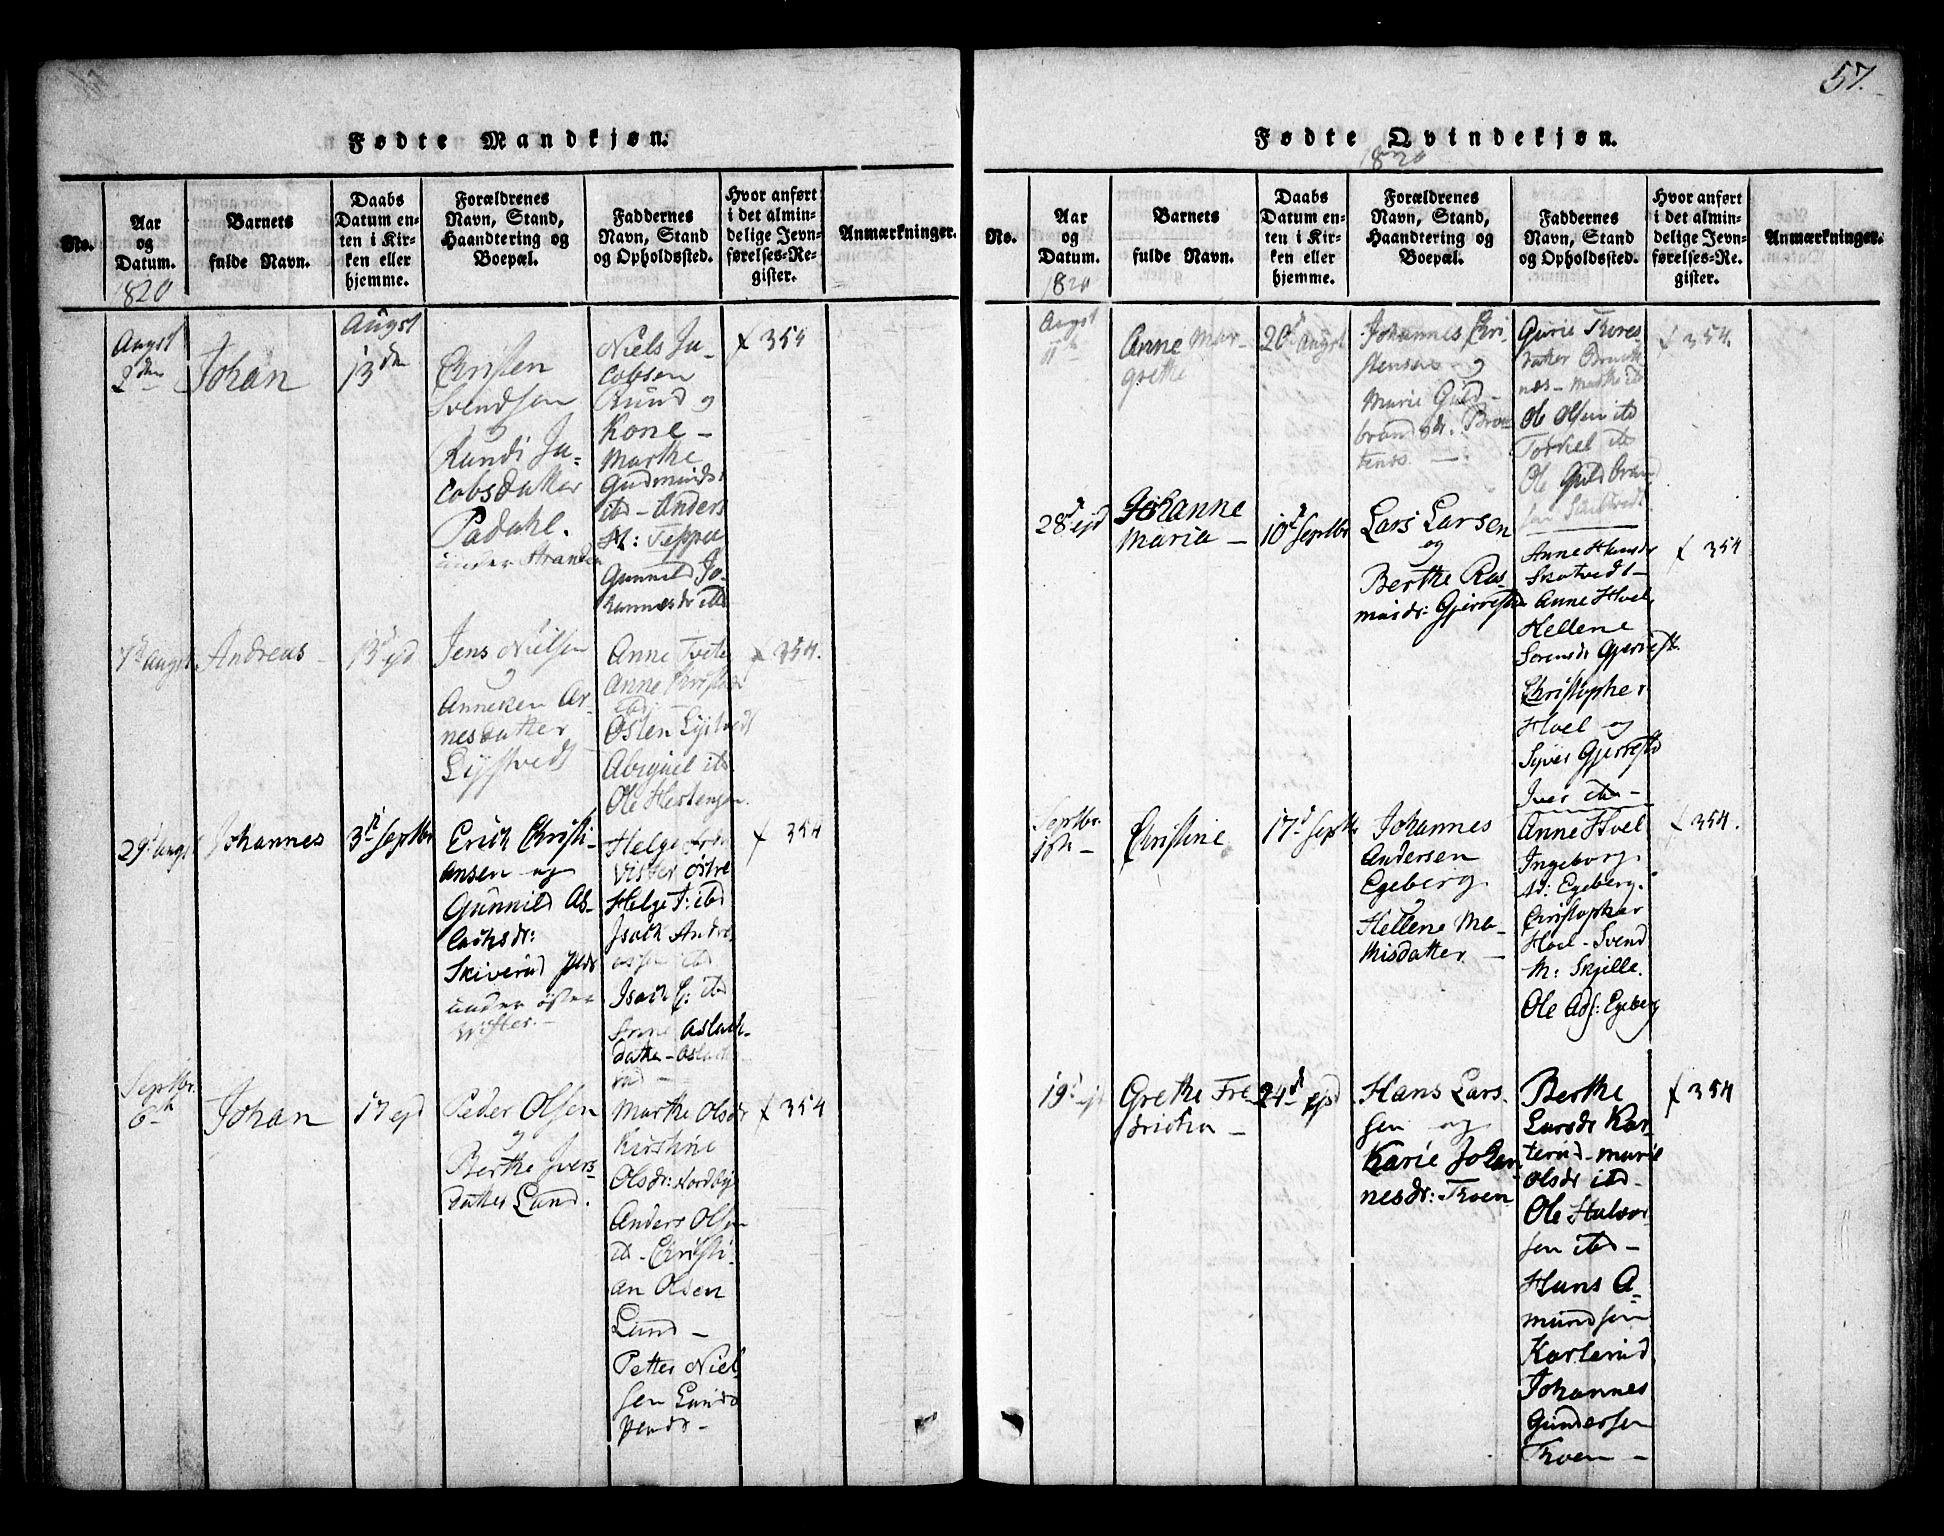 57.
Fødte Mandkjøn.
No.
Aar
og
Datum.
1820
Barnets
fulde Navn.
Daabs
Datum en-
ten i Kir-
ken eller
hjemme.
Forældrenes
Navn, Stand,
Haandtering og
Boepæl.
Faddernes
Navn, Stand
og Opholdssted.
Hvor anført
i det almin-
delige Jevn-
førelses-Re-
gister.
Anmærkninger.
Augst
2den
Johan
Augst
13den
Christen
Svendsen
og
Randi Ja-
cobsdatter
Padahl.
under Stranden
Niels Ja-
cobsen
Rund og
Kone -
Marthe
Gudmunds
itd - Anders
Gunnild Jo-
hannesdr itd
x 354
7de augst
Andreas -
13d ejd
Jens Nielsen
og
Anneken Ar-
nesdatter
Lystvedt
Anne Tvete
Anne Christ
itd
Osten Lystvedt
Abiguel itd
Ole Hestengen
x 354.
29d augst
Johannes
3d Septbr
Erich Christi-
ansen og
Gunnild As-
lachsdr:
Skiverud
under østre
Helge
østre
Helge T: itd
Isach Andre-
assen itd
Isach C: itd
Anne Aslach-
datter - Aslach-
rud -
x 354
Septbr.
6te
Johan
17 ejd
Peder Olsen
og
Berthe Ivers-
datter Lund.
Marthe Olsdr
Kirstine
Olsdr: Nordby
Anders Olsen
itd - Christi-
an Olsen
Lund -
Petter Niel-
sen Lund
x 354
Fødte Qvindekjøn.
1820
No.
Aar
og
Datum.
1820
Barnets
fulde Navn.
Daabs
Datum en-
ten i Kir-
ken eller
hjemme.
Forældrenes
Navn, Stand,
Haandtering og
Boepæl.
Faddernes
Navn, Stand
og Opholdssted.
Hvor anført
i det almin-
delige Jevn-
førelses-Re-
gister.
Anmærkninger.
Augst
11te
Anne Mar-
grethe
20d Augst
Johannes Chri-
stensen og
Marie Guld-
brandsdr. Bra-
tenes -
Gurie Thores-
datter Braate-
nes - Marthe itd
Ole Olsen itd
Torkel itd
Ole Guldbrand-
sen Skutvedt.
x 354.
28d ejd
Johanne
Maria -
10d Septbr
Lars Larsen
og
Berthe Ras-
musdr: Gjerrestad
Anne Hansdr
Skotvedt -
Anne Hvel,
Hellene
Sorensdr Gjerrest.
Christopher
Hoel og
Syver Gjerrestd
Iver itd -
x 354
Septbr.
10de -
Christine
17d Septbr
Johannes
Andersen
Egeberg
og
Hellene Ma-
thisdatter -
Anne Hvel
Ingeborg
Ad: Egeberg.
Christopher
Hoel - Svend
M: Skjelle.
Ole Ads: Egeberg
x 354.
19d ejd
Grethe Fre-
dricha -
24d ejd
Hans Lars-
sen og
Karie Johan-
nesdr: Thoen
Berthe
Larsdr Kar-
terud - Marie
Olsdr itd -
Ole Halvor-
sen itd -
Hans A-
mundsen
Karterud
Johannes
Gundersen
Thoen -
x 354